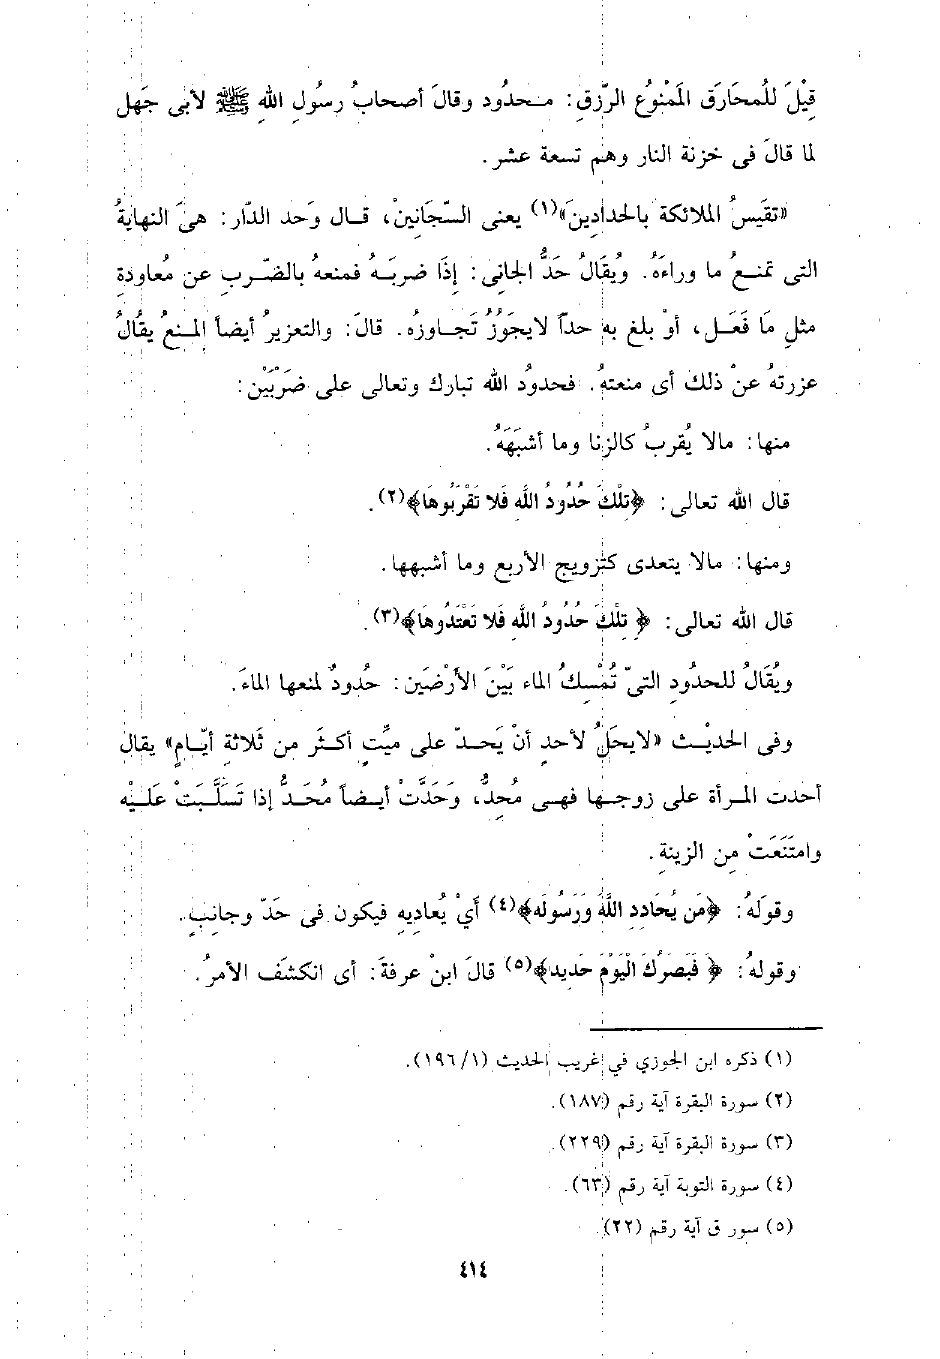 قِيْلَ للُمحَارَق الَمنْوُع الرِّزقِ: محدُود وقالَ أصحابُ رسُولِ اللهِ ﷺ لأبى جَهل
لما قالَ فى خزنة النار وهم تسعة عشر.
«تقَيسُ الملائكة بالحَدادِينَ»(١) يعنى السَّجَانِينْ، قال وَحد الدّار: هىَ النهايةُ
التى تمنعُ ما وراءَهُ. ويُقَالُ حَدُّ الجانِى: إذَا ضربَهُ فمنعهُ بالضّربِ عن مُعاودةِ
مثلِ مَا فَعَل، أوْ بلغ به حداً لايجَوُزُ تَجاوزُه. قالَ: والتعزيرُ أيضاً المنعُ يقُالُ
عزرتهُ عنْ ذلك أى منعتهُ. فحدودُ الله تبارك وتعالى على ضرَبَيْن:
منها: مالا يُقربُ كالزنا وما أشبَهَهُ.
قال الله تعالى: ﴿تلْكَ حُدُودُ اللَّه فَلا تَقْرَبُوهَا﴾(٢).
ومنها: مالا يتعدى كتزويج الأربع وما أشبهها.
قال الله تعالى: ﴿ تلْكَ حُدُودُ اللَّهِ فَلا تَعْتَدُوهَا﴾(٣).
ويُقَالُ للحدُودِ التىّ تُمْسِكُ الماء بَيْنَ الأرْضَين: حُدودٌ لمنعها الماءَ.
وفى الحديْث «لايحَلُ لأحدٍ أنْ يَحدّ على ميِّتٍ أكثَر من ثَلاثةِ أيّامٍ» يقال
أحَدت المرأة على زوجها فهى مُحِدُّ، وَحَدَّتْ أيضاً مُحَدُّ إذا تَسَلَّبَتْ عَليْه
وامتَنَعَتْ مِن الزينةِ.
وقولَهُ: ﴿مَن يُحَادِدِ اللَّهَ وَرَسُولَه﴾(٤) أَيْ يُعادِيهِ فيكون فى حَدّ وجانبٍ.
وقولهُ: ﴿ فَبَصَرُكَ الْيَوْمَ حَديد﴾(٥) قالَ ابنْ عرفةَ: أى انكشَف الأمرُ.
(١) ذكره ابن الجوزي في غريب الحديث (١/ ١٩٦).
(٢) سورة البقرة آية رقم (١٨٧).
(٣) سورة البقرة آية رقم (٢٢٩).
(٤) سورة التوبة آية رقم (٦٣).
(٥) سور ق آية رقم (٢٢).
٤١٤